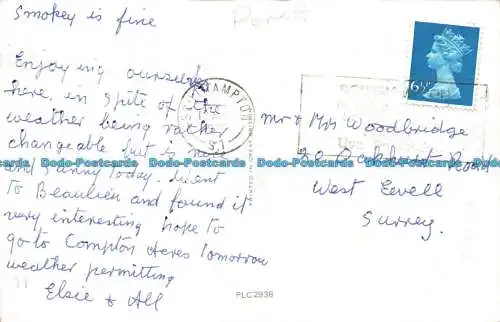 Smokey is fine
Enjoying ourselves
here, in spite of the
weather being rather
changeable but is nice
and sunny today. Went
to Beaulieu and found it
very interesting hope to
go to Compton Acres Tomorrow
weather permitting
Elsie & All
Mr & Mrs Woodbridge
Road
West Ewell
Surrey.
6½P
PLC2938
Dodo-Postcards Dodo-Postcards Dodo-Postcards Dodo-Postcards Dodo-Postcards